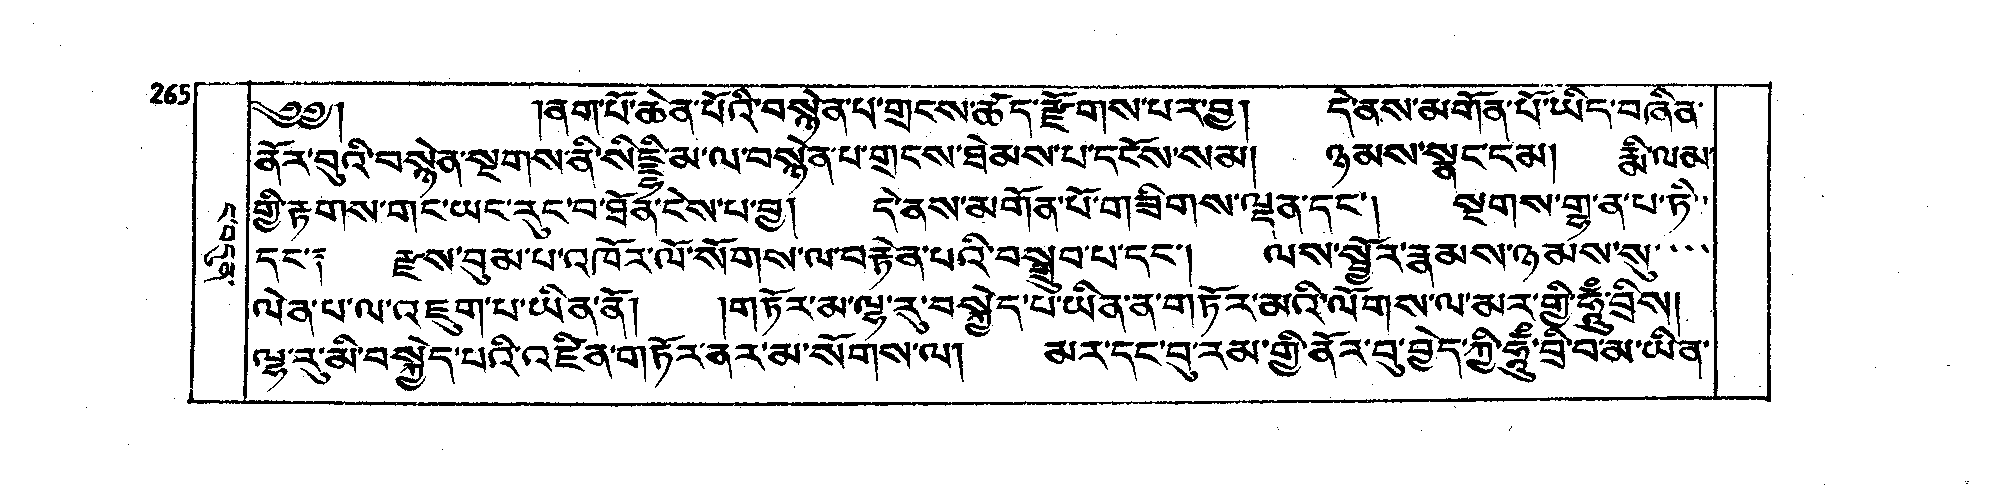 265
༄༅། །ནག་པོ་ཆེན་པོའི་བསྙེན་པ་གྲངས་ཚད་རྫོགས་པར་བྱ། དེ་ནས་མགོན་པོ་ཡིད་བཞིན་
ནོར་བུའི་བསྙེན་སྔགས་ནི་སིདྡྷི་མ་ལ་བསྙེན་པ་གྲངས་ཐེམས་པ་དངོས་སམ། ཉམས་སྣང་ངམ། རྨི་ལམ་
གྱི་རྟགས་གང་ཡང་རུང་བ་ཐོན་ངེས་པ་བྱ། དེ་ནས་མགོན་པོ་གཟིགས་ལྡན་དང་། སྔགས་གྷ་ན་པ་ཏི་
དང་། རྫས་བུམ་པ་འཁོར་ལོ་སོགས་ལ་བརྟེན་པའི་བསྒྲུབ་པ་དང་། ལས་སྦྱོར་རྣམས་ཉམས་སུ་
ལེན་པ་ལ་འཇུག་པ་ཡིན་ནོ། །གཏོར་མ་ལྷ་རུ་བསྐྱེད་པ་ཡིན་ན་གཏོར་མའི་ལོགས་ལ་མར་གྱི་ཧཱུྃ་བྲིས།
ལྷ་རུ་མི་བསྐྱེད་པའི་འཛིན་གཏོར་ནར་མ་སོགས་ལ། མར་དང་བུ་རམ་གྱི་ནོར་བུ་བྱེད་ཀྱི་ཧཱུྃ་བྲི་བ་མ་ཡིན་